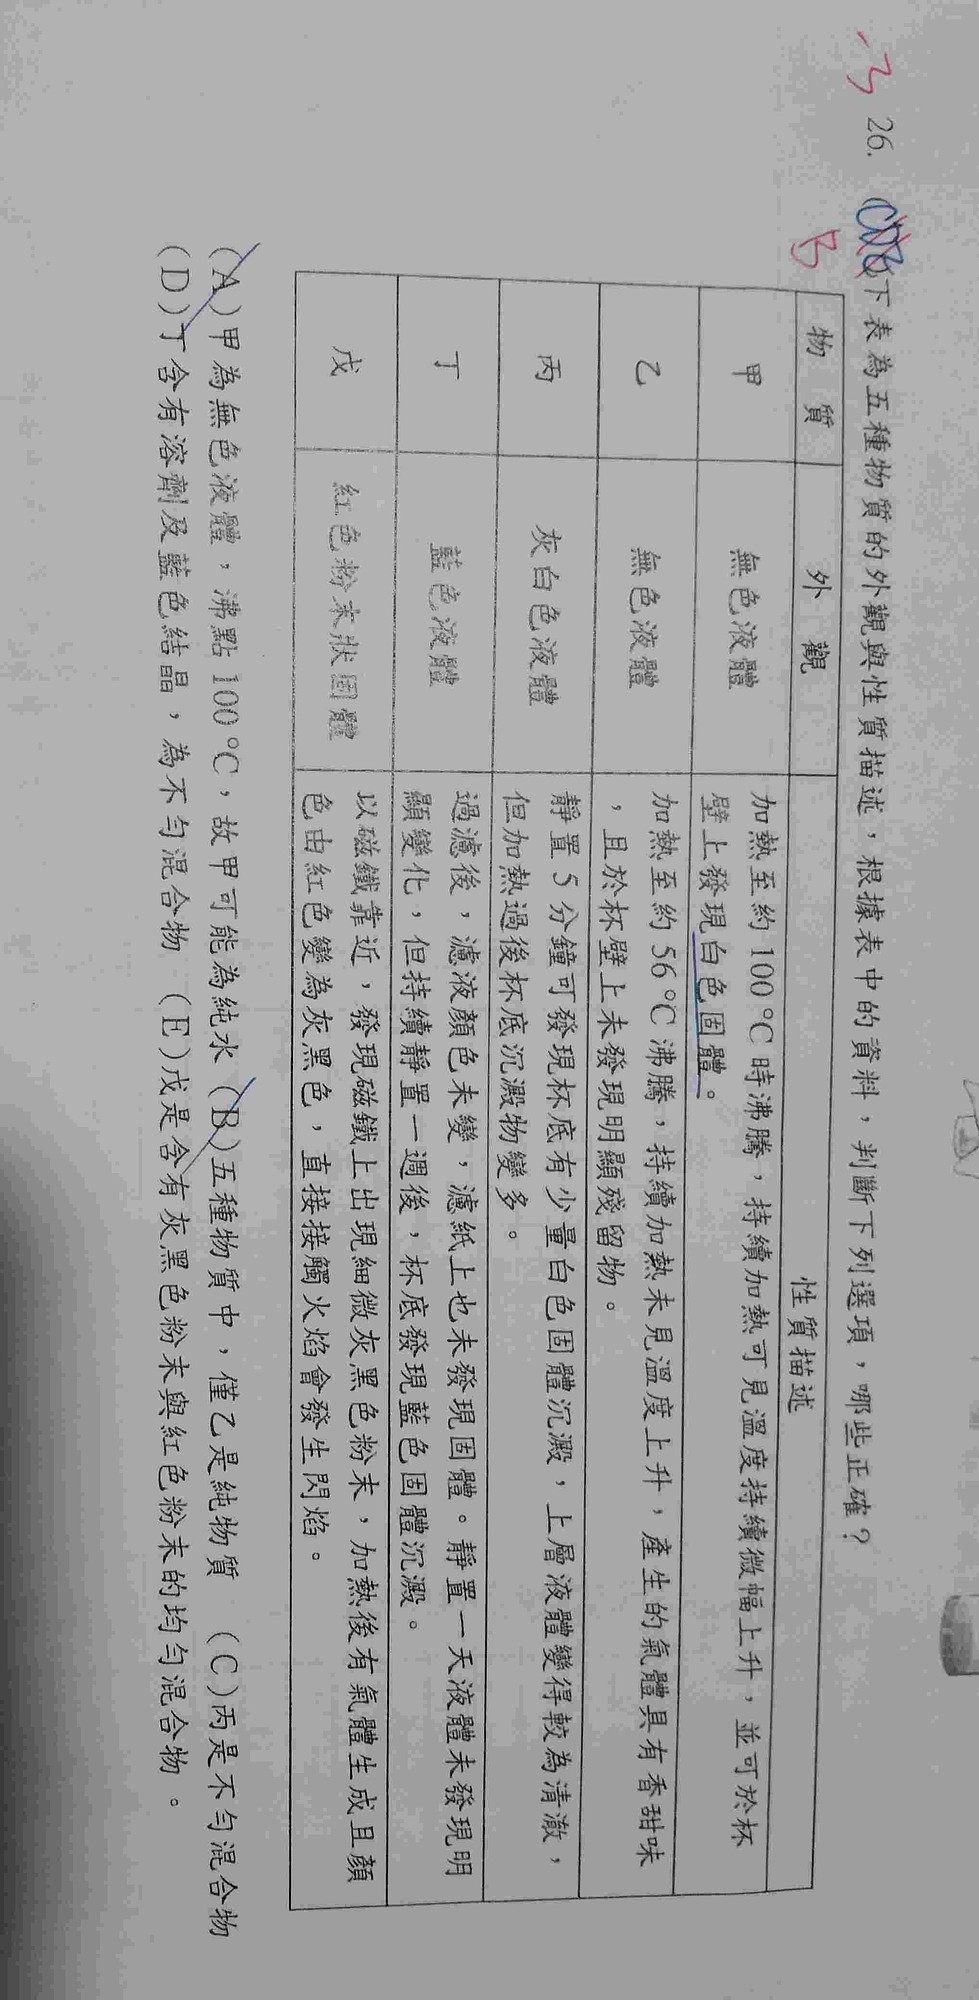 26. 下表為五種物質的外觀與性質描述，根據表中的資料，判斷下列選項，哪些正確？
B
物 質 外 觀 性質描述
甲 無色液體 加熱至約 100 ℃ 時沸騰，持續加熱可見溫度持續微幅上升，並可於杯
壁上發現白色固體。
乙 無色液體 加熱至約 56 ℃ 沸騰，持續加熱未見溫度上升，產生的氣體具有香甜味
，且於杯壁上未發現明顯殘留物。
丙 灰白色液體 靜置 5 分鐘可發現杯底有少量白色固體沉澱，上層液體變得較為清澈，
但加熱過後杯底沉澱物變多。
丁 藍色液體 過濾後，濾液顏色未變，濾紙上也未發現固體。靜置一天液體未發現明
顯變化，但持續靜置一週後，杯底發現藍色固體沉澱。
戊 紅色粉末狀固體 以磁鐵靠近，發現磁鐵上出現細微灰黑色粉末，加熱後有氣體生成且顏
色由紅色變為灰黑色，直接接觸火焰會發生閃焰。
(A)甲為無色液體，沸點 100 ℃，故甲可能為純水 (B)五種物質中，僅乙是純物質 (C)丙是不勻混合物
(D)丁含有溶劑及藍色結晶，為不勻混合物 (E)戊是含有灰黑色粉末與紅色粉末的均勻混合物。